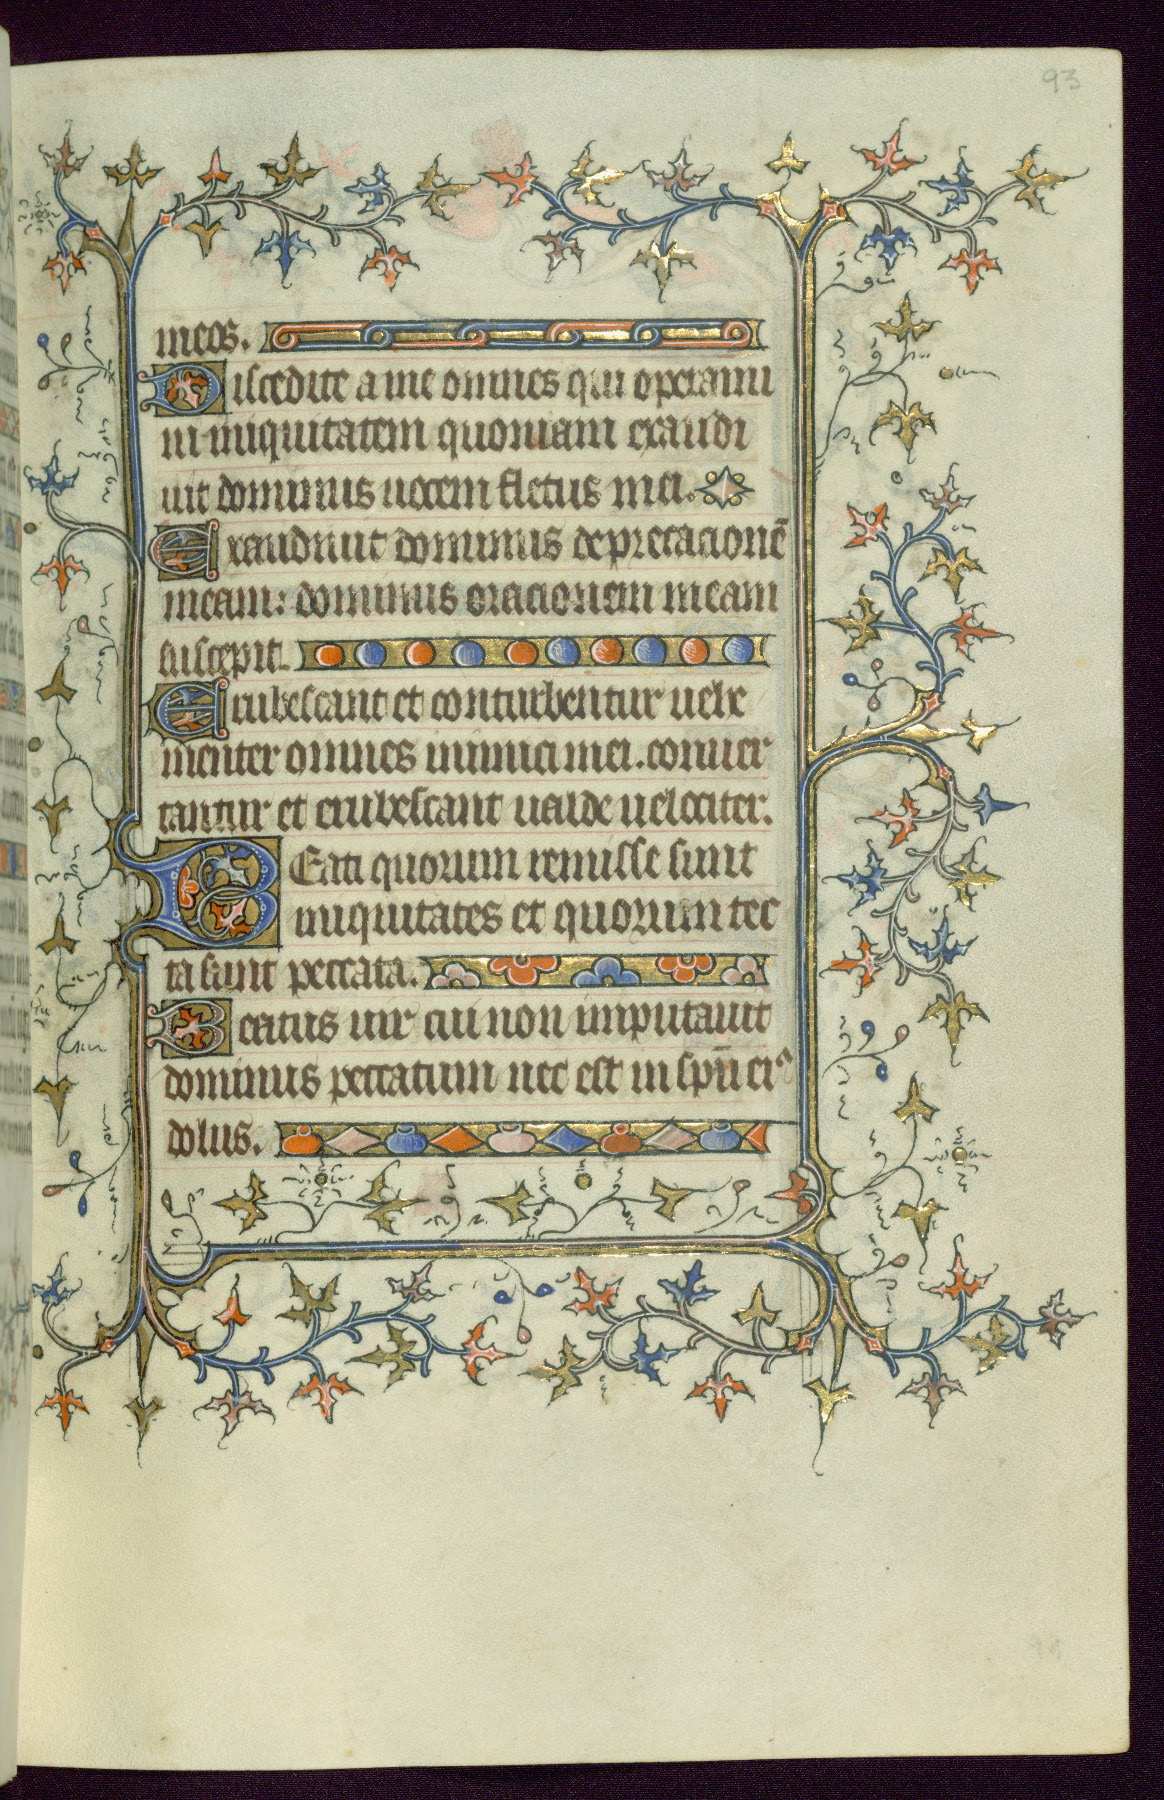 93
meos.
Discedite a me omnes qui operami
ni iniquitatem quoniam exaudi
uit dominus uocem fletus mei.
Exaudiuit dominus deprecacionē
meam: dominus oracionem meam
suscepit.
Erubescant et conturbentur uehe
menter omnes inimici mei. conuer
tantur et erubescant ualde uelociter.
Beati quorum remisse sunt
iniquitates et quorum tec
ta sunt peccata.
Beatus uir cui non imputauit
dominus peccatum nec est in spū eiꝰ
dolus.